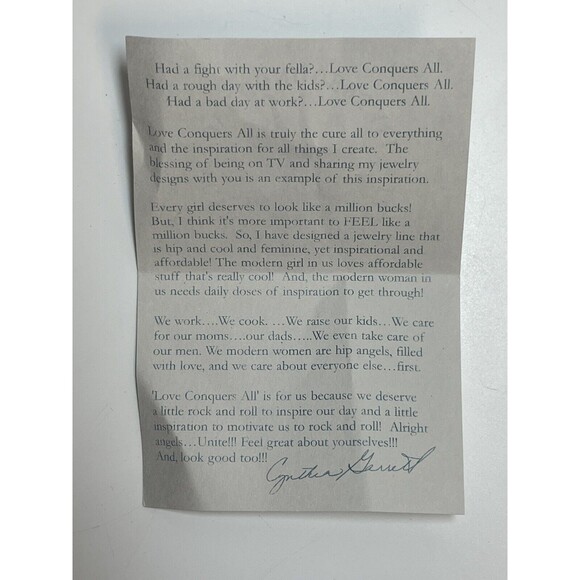 Had a fight with your fella?...Love Conquers All.
Had a rough day with the kids?...Love Conquers All.
Had a bad day at work?...Love Conquers All.
Love Conquers All is truly the cure all to everything
and the inspiration for all things I create. The
blessing of being on TV and sharing my jewelry
designs with you is an example of this inspiration.
Every girl deserves to look like a million bucks!
But, I think it's more important to FEEL like a
million bucks. So, I have designed a jewelry line that
is hip and cool and feminine, yet inspirational and
affordable! The modern girl in us loves affordable
stuff that's really cool! And, the modern woman in
us needs daily doses of inspiration to get through!
We work....We cook. ...We raise our kids...We care
for our moms....our dads.....We even take care of
our men. We modern women are hip angels, filled
with love, and we care about everyone else...first.
'Love Conquers All' is for us because we deserve
a little rock and roll to inspire our day and a little
inspiration to motivate us to rock and roll! Alright
angels...Unite!!! Feel great about yourselves!!!
And, look good too!!!
Cynthia Garrett